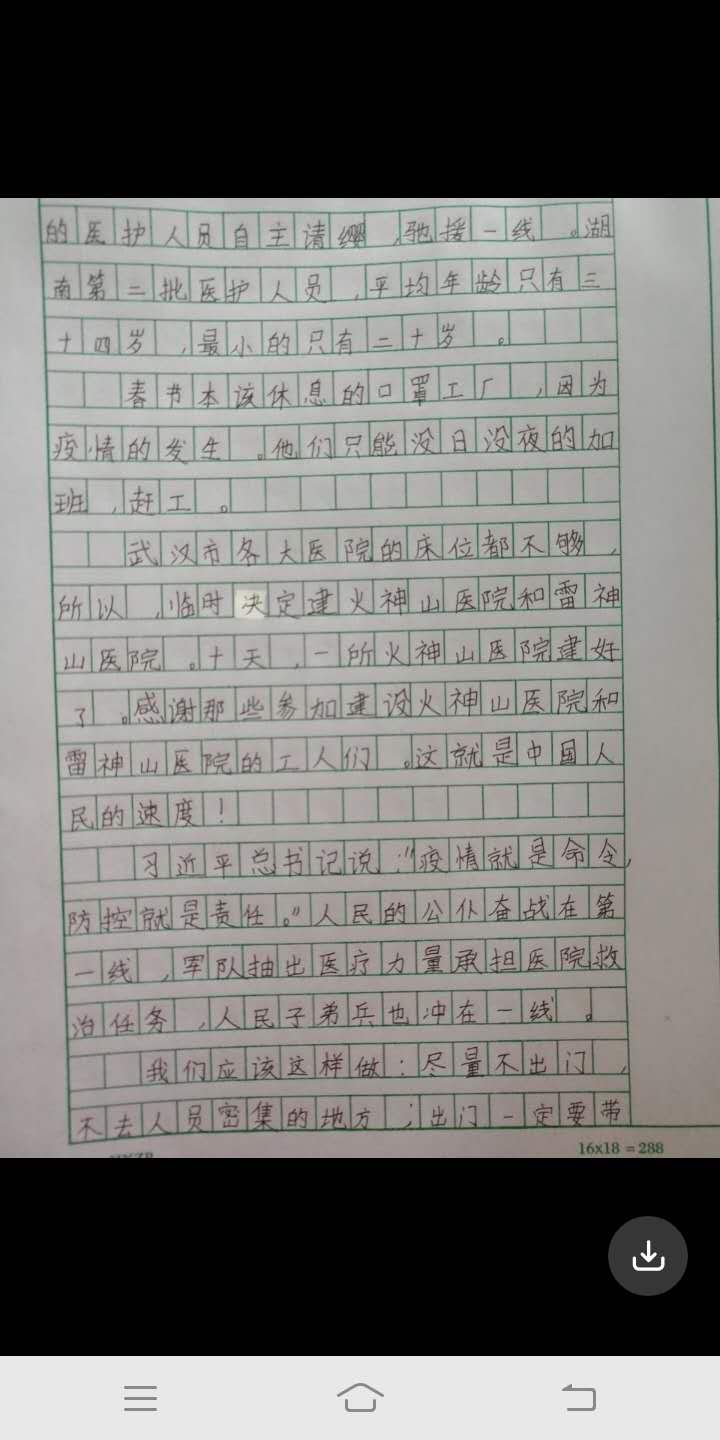 的医护人员自主请缨,驰援一线。湖
南第二批医护人员,平均年龄只有三
十四岁,最小的只有二十岁。
春节本该休息的口罩工厂,因为
疫情的发生。他们只能没日没夜的加
班,赶工。
武汉市各大医院的床位都不够,
所以,临时决定建火神山医院和雷神
山医院。十天,一所火神山医院建好
了。感谢那些参加建设火神山医院和
雷神山医院的工人们。这就是中国人
民的速度!
习近平总书记说:"疫情就是命令,
防控就是责任。"人民的公仆奋战在第
一线,军队抽出医疗力量承担医院救
治任务,人民子弟兵也冲在一线。
我们应该这样做:尽量不出门,
不去人员密集的地方;出门一定要带
16x18=288